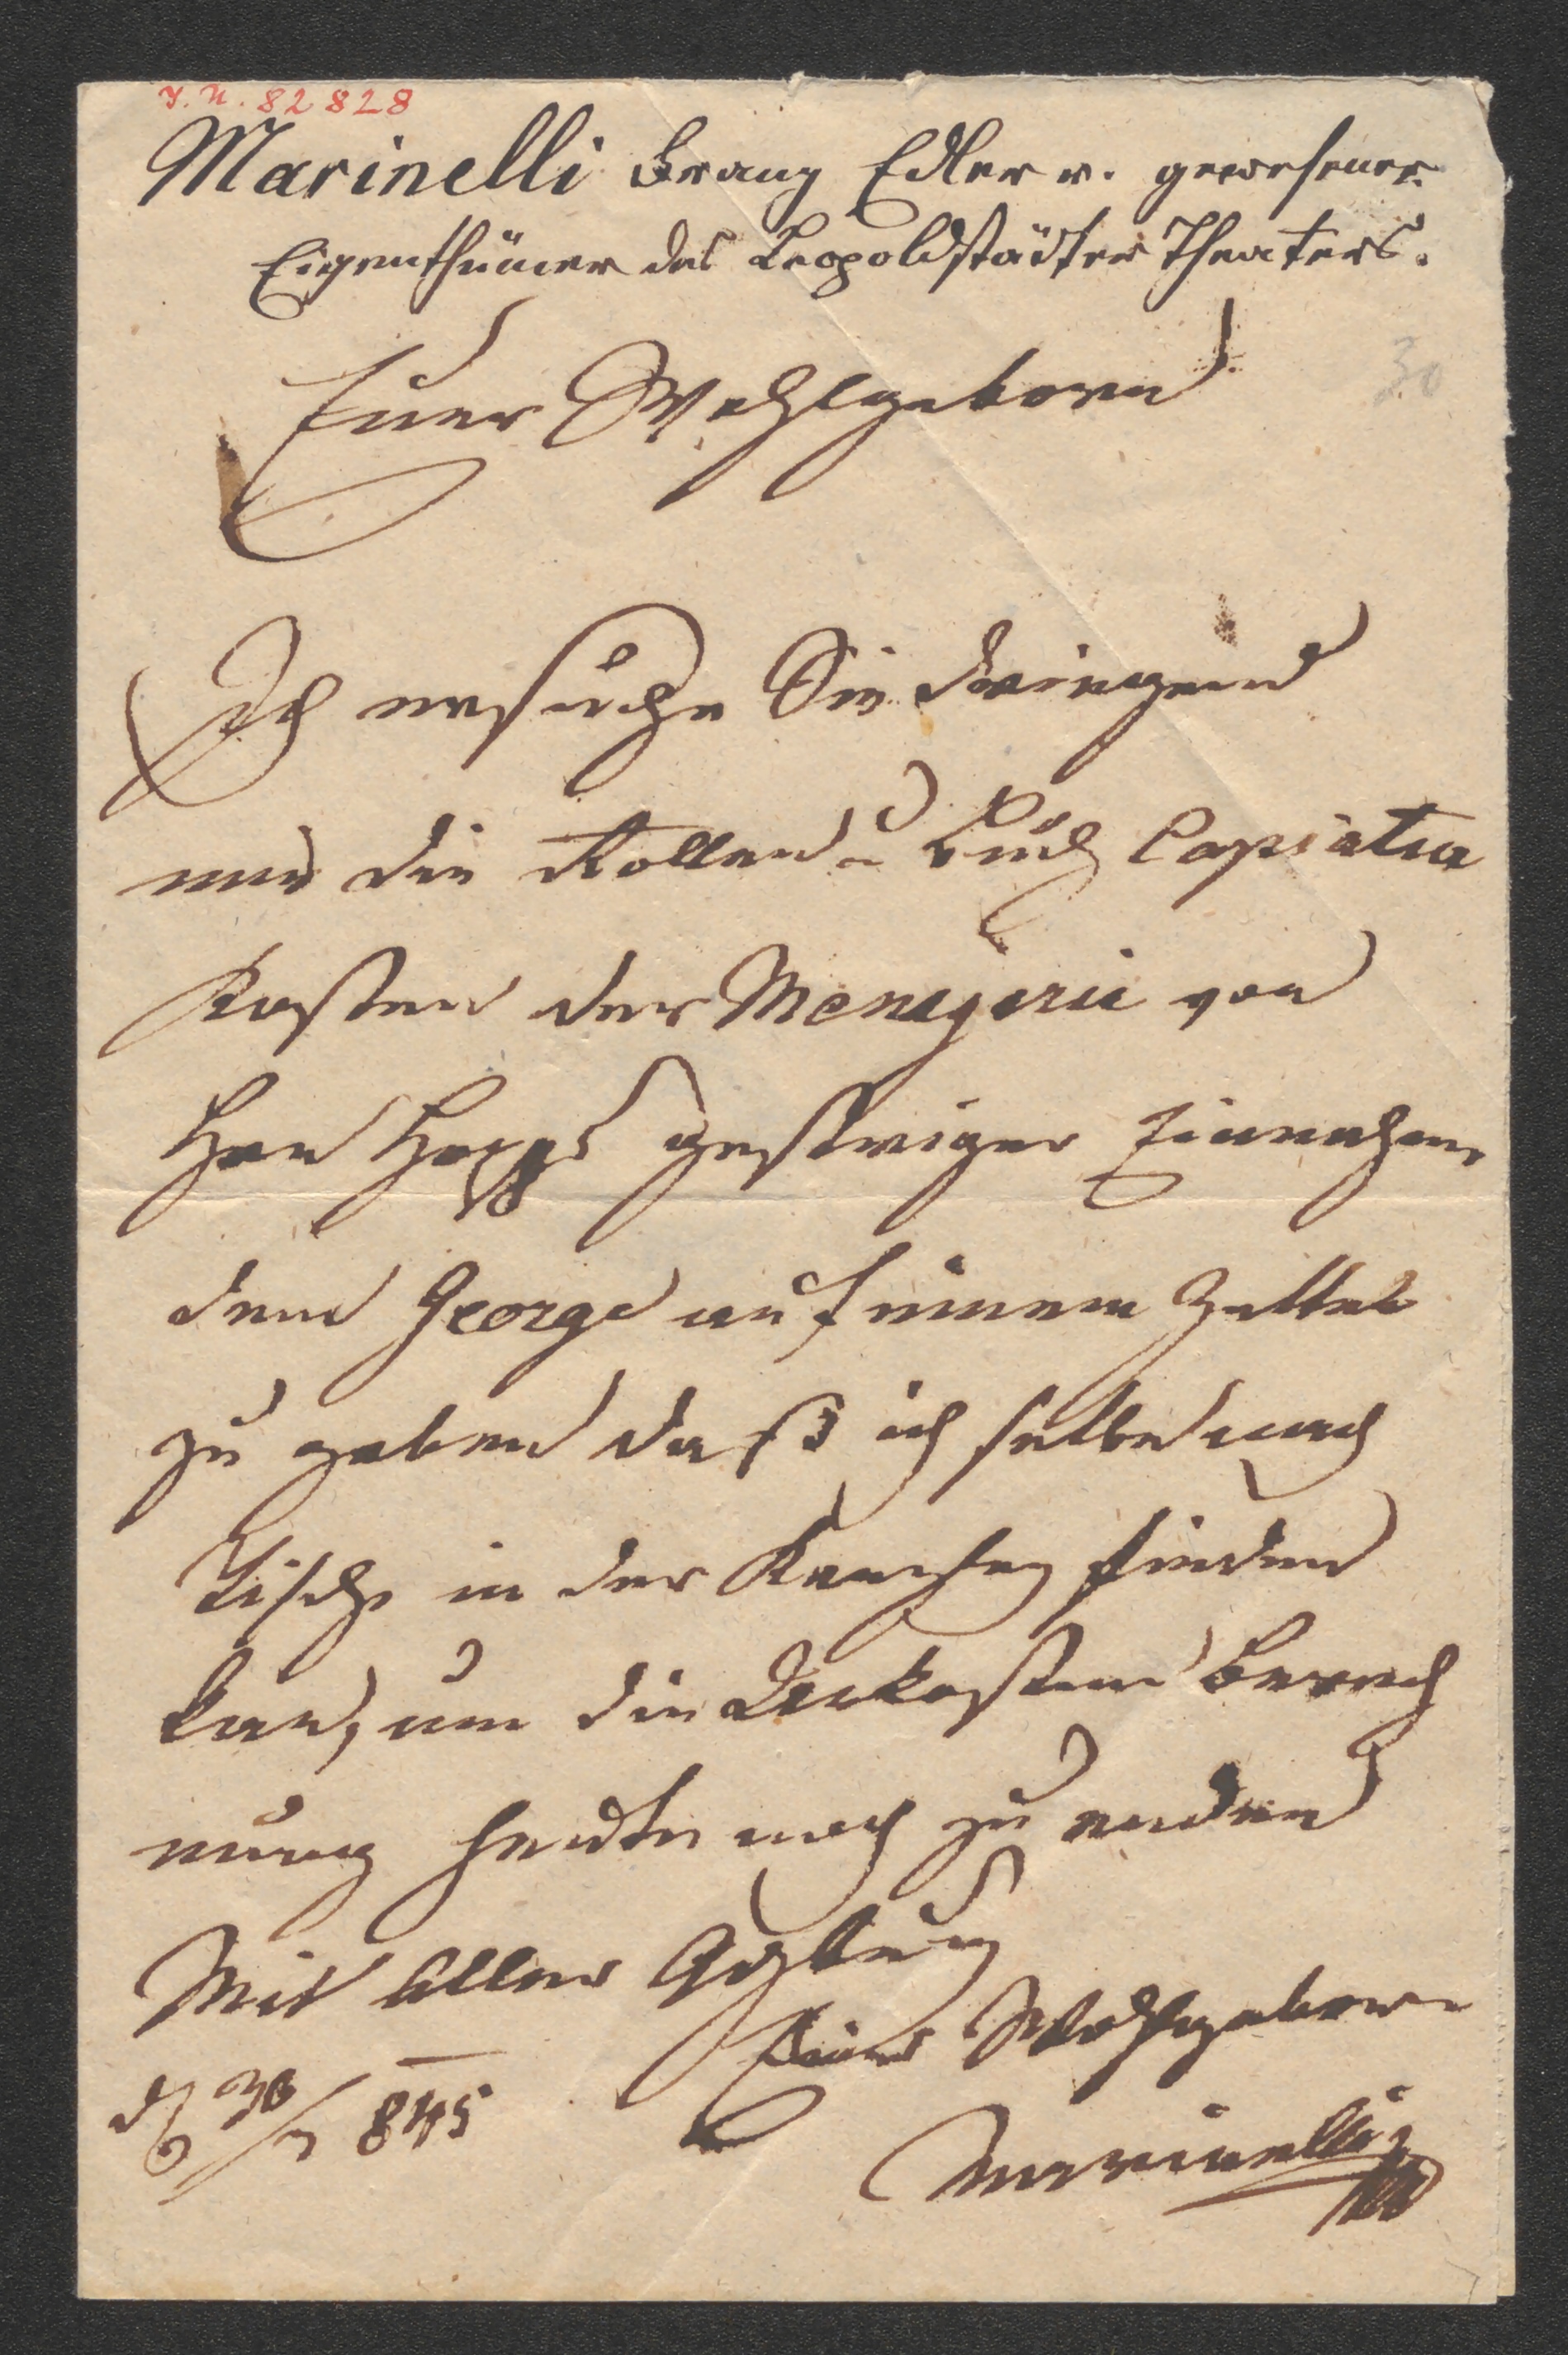 I. N. 82828
Marinelli Franz Edler v. gewesener
Eigenthümer des Leopoldstädter Theaters.
30
Euer Wohlgeborn
Ich ersuche Sie dringend
mir die Rollen u Buch Copiatur
Kosten der Menagerie von
Hern Hopps gestriger Einnahme
dem George auf einem Zettel
zu geben daß ich selbe nach
Tische in der Kanzley finden
kan, um die Unkosten Berech
nung heute noch zu enden
Mit aller Achtung
Euer Wohlgeborn
d 30/7 845
Marinelli